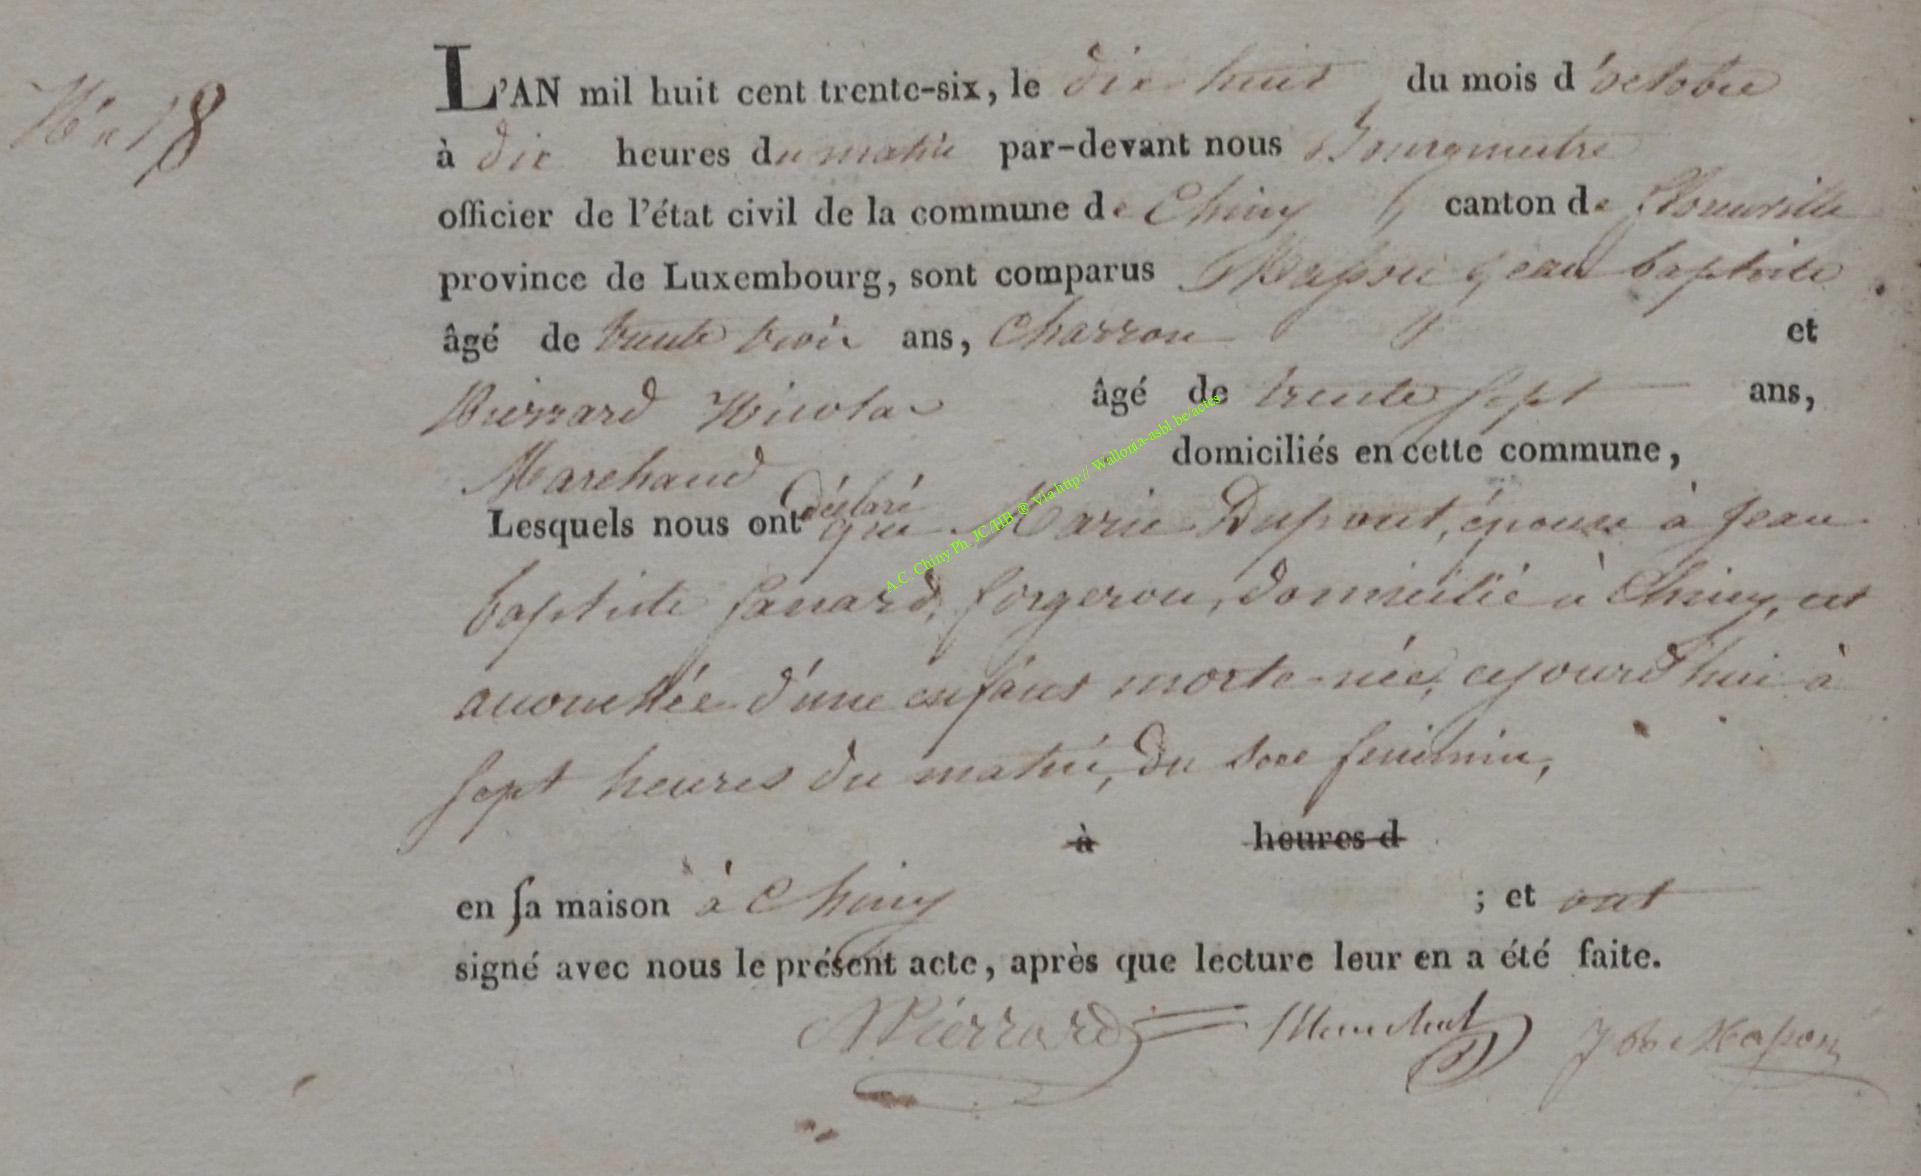 N° 18
L'AN mil huit cent trente-six, le dix huit du mois d'octobre
à dix heures du matin par-devant nous Bourgmestre
officier de l'état civil de la commune de Chiny canton de Florenville
province de Luxembourg, sont comparus Masson jean baptiste
âgé de trente trois ans, Charron et
Pierrard Nicolas âgé de trente sept ans,
Marchand domiciliés en cette commune,
Lesquels nous ont déclaré que Marie Dupont, épouse à Jean
baptiste Sanard, forgeron, domicilié à Chiny, est
accouchée d'une enfant morte-née, cejourd'hui à
sept heures du matin, du sexe feminin,
à heures d
en sa maison à Chiny ; et ont
signé avec nous le présent acte, après que lecture leur en a été faite.
NPierrard JB Masson
A.C. Chiny Ph. JC/HB @ Via http:// Wallonia-asbl.be/actes